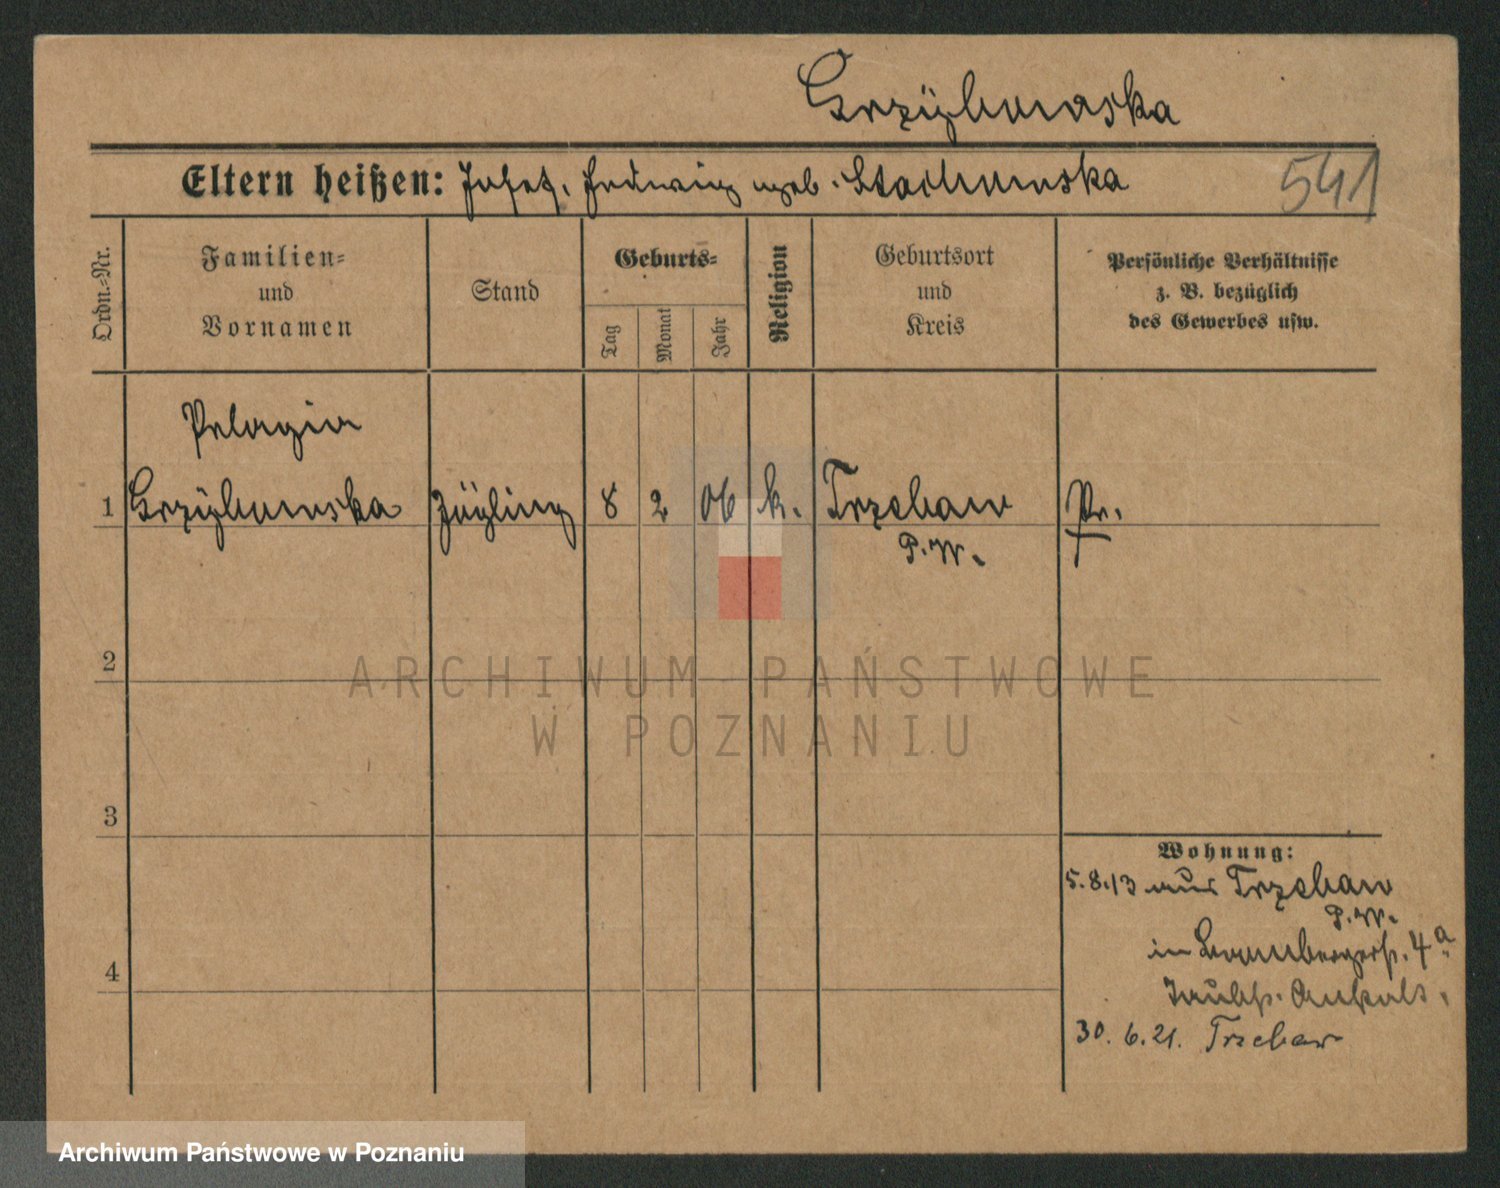 Grzÿbowska
Eltern heißen: Josef, Hedwig geb. Stachowska
541
Ordn.-Nr.
Familien-
und
Vornamen
Stand
Geburts-
Tag
Monat
Jahr
Religion
Geburtsort
und
Kreis
Persönliche Verhältnisse
z. B. bezüglich
des Gewerbes usw.
Pelagia
1 Grzÿbowska Zögling 8 2 06 k. Trzebaw Pr.
P. W.
2
ARCHIWUM PAŃSTWOWE
W POZNANIU
3
Wohnung:
5.8.13 aus Trzebaw
P. W.
in Brombergerst. 4a
4
Taubst. Anstalt.
30. 6. 21. Trzebaw
Archiwum Państwowe w Poznaniu